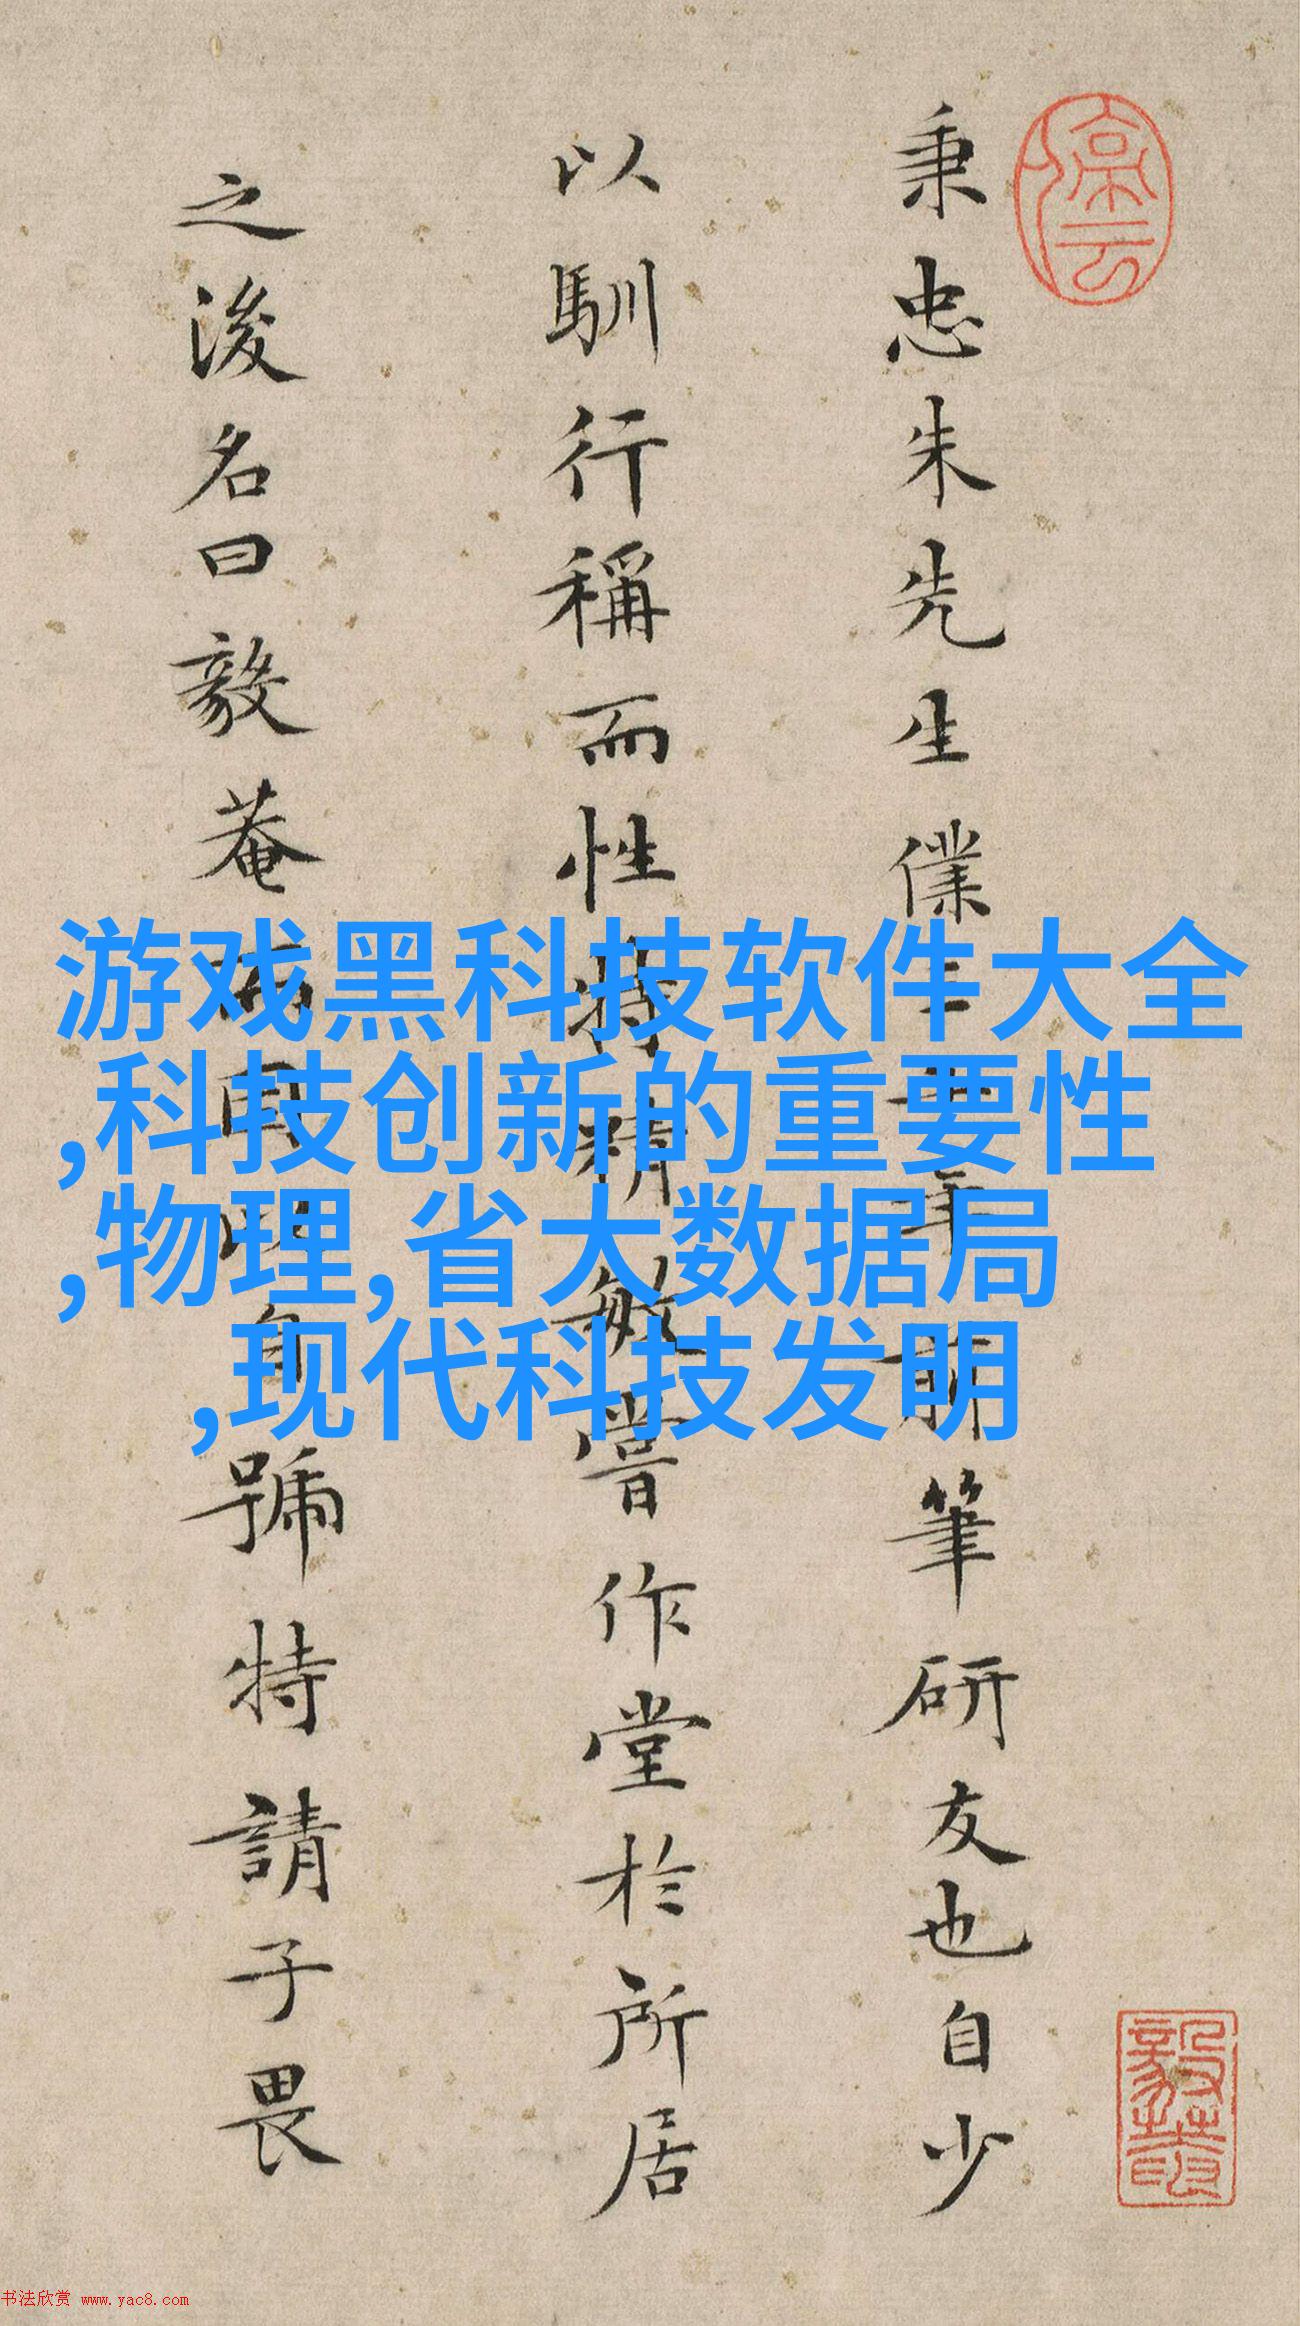 停云
秉忠朱先生僕二十年前筆研友也自少
以馴行稱而性特精敏嘗作堂於所居
之浚名曰毅菴而因以自號特請子畏
游戏黑科技软件大全
,科技创新的重要性
,物理,省大数据局
,现代科技发明
书法欣赏 www.yac8.com